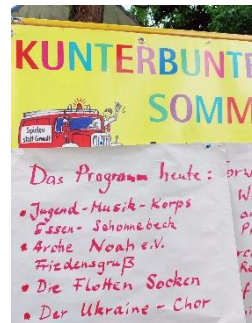 KUNTERBUNTE
SOMM
Spielen
statt Gewalt
Das Programm heute:
• Jugend-Musik-Korps
Essen-Schonnebeck
• Arche Noah e.V.
Friedensgruß
• Die Flotten Socken
• Der Ukraine-Chor